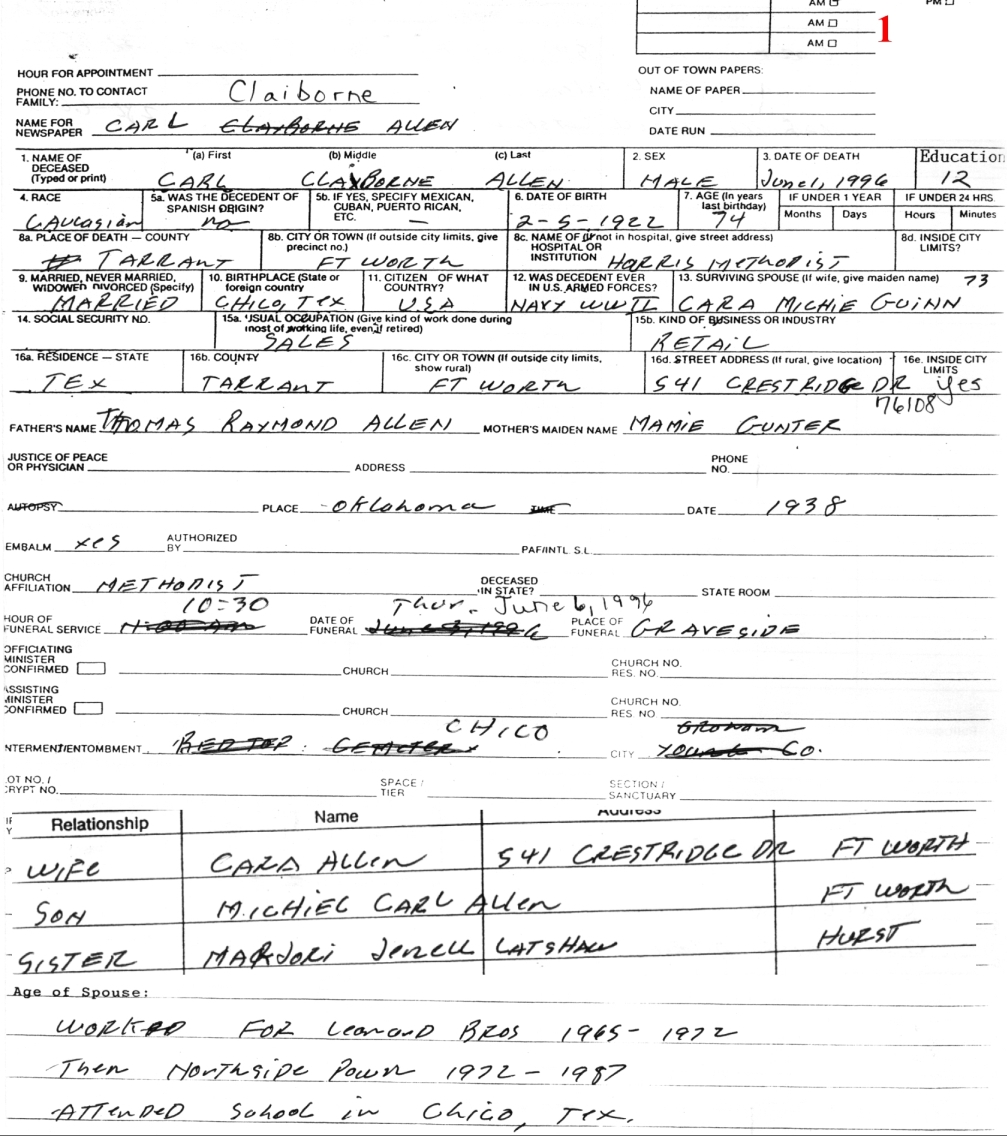 AM ☐ PM ☐
AM ☐ 1
AM ☐
HOUR FOR APPOINTMENT
OUT OF TOWN PAPERS:
PHONE NO. TO CONTACT FAMILY: Claiborne
NAME OF PAPER
CITY
NAME FOR NEWSPAPER CARL CLAYBORNE ALLEN
DATE RUN
1. NAME OF DECEASED (Typed or print) (a) First (b) Middle (c) Last 2. SEX 3. DATE OF DEATH Education
CARL CLAYBORNE ALLEN MALE June 1, 1996 12
4. RACE 5a. WAS THE DECEDENT OF SPANISH ORIGIN? 5b. IF YES, SPECIFY MEXICAN, CUBAN, PUERTO RICAN, ETC. 6. DATE OF BIRTH 7. AGE (In years last birthday) IF UNDER 1 YEAR IF UNDER 24 HRS.
Months Days Hours Minutes
CAucasian no — 2-5-1922 74
8a. PLACE OF DEATH — COUNTY 8b. CITY OR TOWN (If outside city limits, give precinct no.) 8c. NAME OF (If not in hospital, give street address) HOSPITAL OR INSTITUTION 8d. INSIDE CITY LIMITS?
TARRANT FT WORTH HARRIS METHODIST
9. MARRIED, NEVER MARRIED, WIDOWED DIVORCED (Specify) 10. BIRTHPLACE (State or foreign country 11. CITIZEN OF WHAT COUNTRY? 12. WAS DECEDENT EVER IN U.S. ARMED FORCES? 13. SURVIVING SPOUSE (If wife, give maiden name) 73
MARRIED CHICO, TEX USA NAVY WWII CARA MICHIE GUINN
14. SOCIAL SECURITY NO. 15a. USUAL OCCUPATION (Give kind of work done during most of working life, even if retired) 15b. KIND OF BUSINESS OR INDUSTRY
SALES RETAIL
16a. RESIDENCE – STATE 16b. COUNTY 16c. CITY OR TOWN (If outside city limits, show rural) 16d. STREET ADDRESS (If rural, give location) 16e. INSIDE CITY LIMITS
TEX TARRANT FT WORTH 541 CRESTRIDGE DR yes
76108
FATHER'S NAME THOMAS RAYMOND ALLEN MOTHER'S MAIDEN NAME MAMIE GUNTER
JUSTICE OF PEACE OR PHYSICIAN ADDRESS PHONE NO.
AUTOPSY PLACE Oklahoma TIME DATE 1938
EMBALM yes AUTHORIZED BY PAF/INTL S.L.
CHURCH AFFILIATION METHODIST DECEASED IN STATE? STATE ROOM
10:30 Thur. June 6, 1996
HOUR OF FUNERAL SERVICE DATE OF FUNERAL PLACE OF FUNERAL GRAVESIDE
OFFICIATING MINISTER CONFIRMED CHURCH CHURCH NO. RES. NO.
ASSISTING MINISTER CONFIRMED CHURCH CHURCH NO. RES NO
CHICO Graham
NTERMENT/ENTOMBMENT RED TOP CEMETERY CITY Young Co.
OT NO. / CRYPT NO. SPACE / TIER SECTION / SANCTUARY
Relationship Name Address
WIFE CARA ALLEN 541 CRESTRIDGE DR FT WORTH
SON MICHIEL CARL ALLEN FT WORTH
SISTER MARJORI Jenell LATSHAW HURST
Age of Spouse:
WORKED FOR Leonard BROS 1965-1972
Then Northside Pawn 1972-1987
ATTENDED School in Chico, Tex.